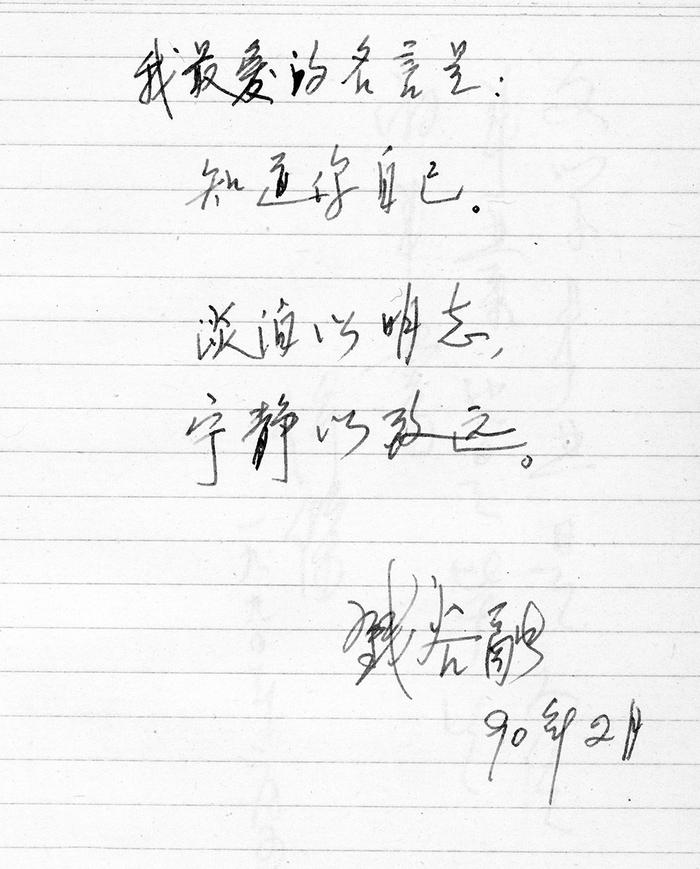 我最爱的名言是：
知道你自己。
淡泊以明志，
宁静以致远。
钱谷融
90年2月